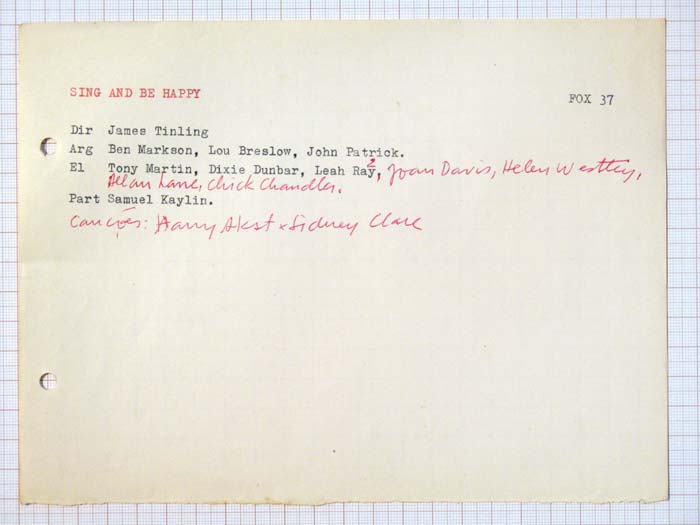 SING AND BE HAPPY
FOX 37
Dir James Tinling
Arg Ben Markson, Lou Breslow, John Patrick.
El Tony Martin, Dixie Dunbar, Leah Ray, Joan Davis, Helen Westley,
Allan Lane, Chick Chandler.
Part Samuel Kaylin.
Harry Akst x Sidney Clare